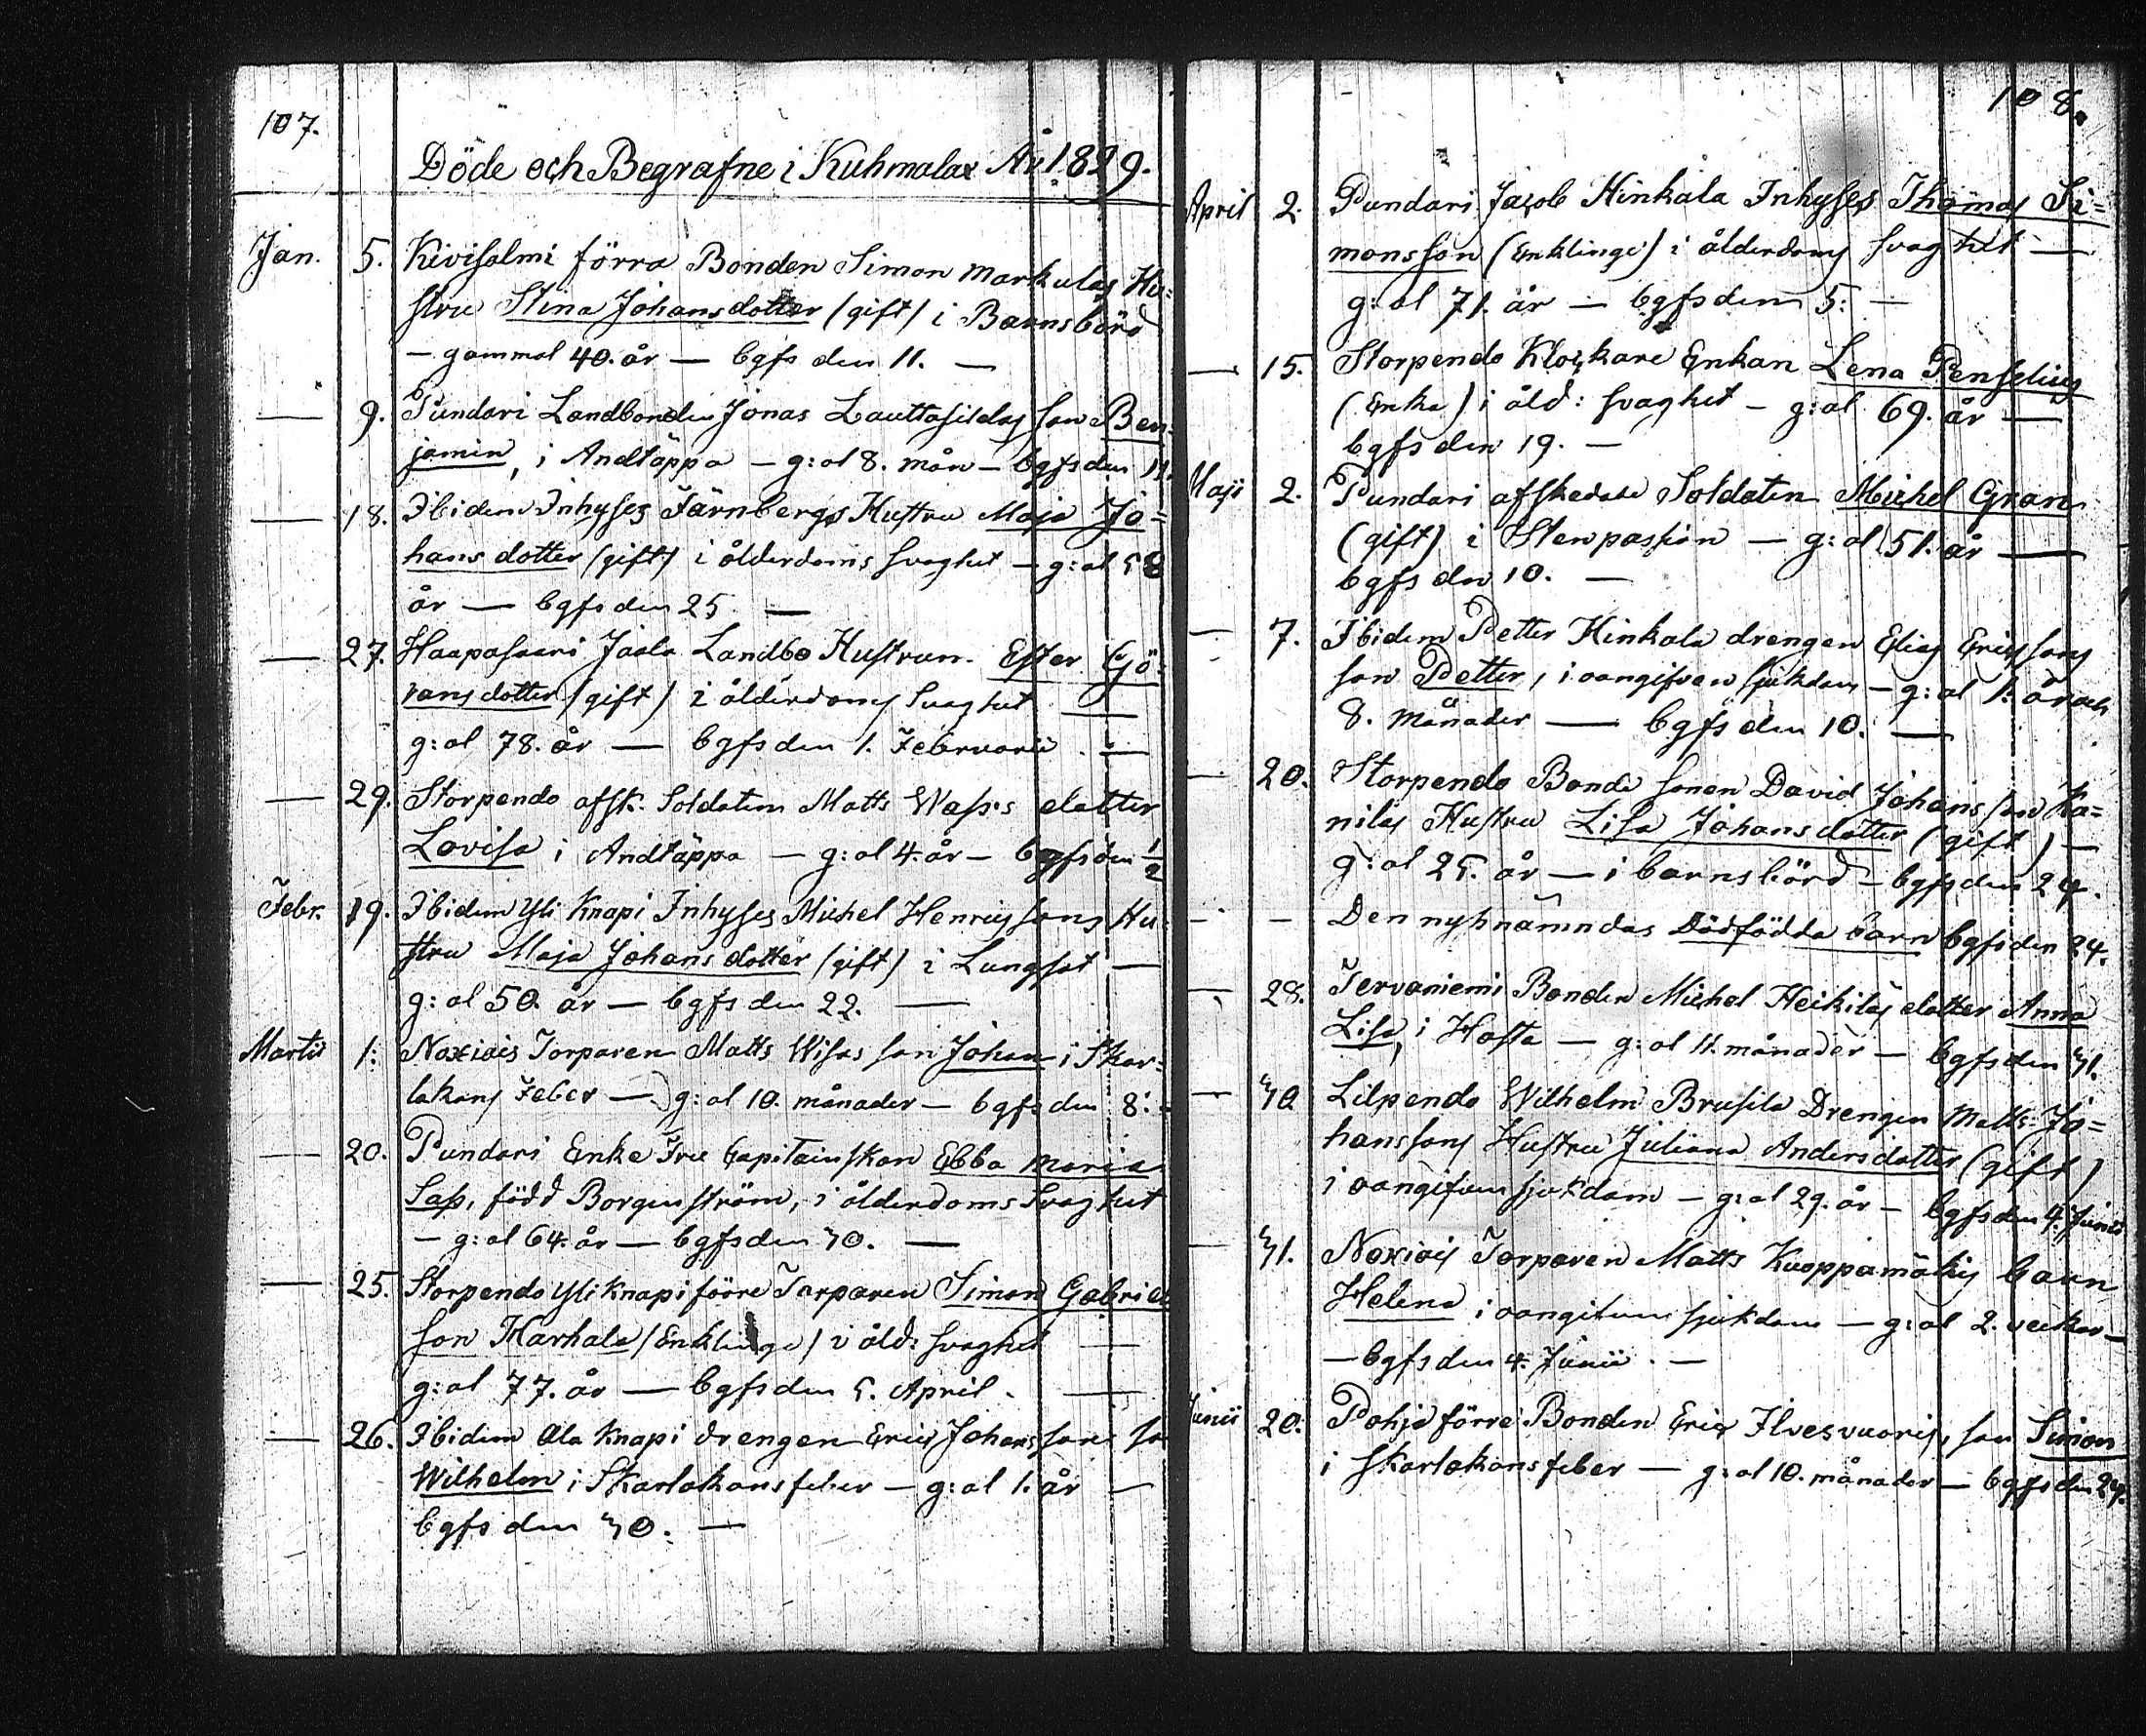 107.
Döde och Begrafne i Kuhmalax År 1829.
Jan. 5. Kivisalmi förra Bonden Simon Markulas Hu=
stru Stina Johansdotter (gift) i Barnsbörd
— gammal 40. år — bgfs den 11. —
— 9. Pundari Landbonden Jonas Lauttasildas son Ben-
jamin, i Andtäppa — g:al 8. mån — bgfs den 11.
— 18. Ibidem Inhyses Färnbergs Hustru Maja Jo=
hans dotter (gift) i ålderdoms svaghet — g:al 58
år — bgfs den 25. —
— 27. Haapasaari Jaala Landbo Hustrun Ester Gö=
rans dotter (gift) i ålderdoms Svaghet —
g:al 78. år — bgfs den 1. Februarii —
— 29. Storpendo afsk. Soldaten Matts Wass's dotter
Lovisa i Andtäppa — g:al 4. år — bgfs den 1/2
Febr. 19. Ibidem Yli Knapi Inhyses Michel Henricssons Hu-
stru Maja Johans dotter (gift) i Lungsot —
g:al 50. år — bgfs den 22. —
Martii 1. Naxiais Torparen Matts Wisas son Johan i Skar-
lakans Feber — g:al 10. månader — bgfs den 8. —
— 20. Pundari Enke Fru Capitainskan Ebba Maria
Sass, född Borgenström, i ålderdoms Svaghet
— g:al 64. år — bgfs den 30. —
— 25. Storpendo Yli Knapi förre Torparen Simon Gabriels
son Karhala (Enklinge) i åld: svaghet —
g:al 77. år — bgfs den 5. April. —
— 26. Ibidem Ala Knapi drengen Eric Johanssons so
Wilhelm i Skarlakansfeber — g:al 1. år —
bgfs den 30. —
108.
April 2. Pundari Jacob Hinkala Inhyses Thomas Si=
monsson (Enklinge) i ålderdoms svaghet —
g:al 71. år — bgfs den 5. —
— 15. Storpendo Klockare Enkan Lena Penselius
(Enka) i åld: svaghet — g:al 69. år —
bgfs den 19. —
Maji 2. Pundari afskedade Soldaten Michel Gran
(gift) i Stenpassion — g:al 51. år —
bgfs den 10. —
— 7. Ibidem Petter Hinkala drengen Elias Ericssons
son Petter, i oangifven sjukdom — g:al 1. år och
8. månader — bgfs den 10. —
— 20. Storpendo Bonde sonen David Johansson Ka=
nilas Hustru Lisa Johans dotter (gift) —
g:al 25. år — i barnsbörd — bgfs den 24.
— - Den nyhsnämndas Dödfödda barn bgfs den 24.
— 28. Tervaniemi Bonden Michel Heikiläs dotter Anna
Lisa, i Hosta — g:al 11. månader — bgfs den 31.
— 30 Lilpendo Wilhelm Brusila Drengen Matts Jo=
hanssons Hustru Juliana Andersdotter (gift)
i oangifven sjukdom — g:al 29. år — bgfs den 4. Junii
— 31. Naxiais Torparen Matts Kuoppamäkis barn
Helena i oangifven sjukdom — g:al 2. veckor —
— bgfs den 4. Junii. —
Junii 20. Pohja förre Bonden Eric Ilvesvuoris, son Simon
i Skarlakansfeber — g:al 10. månader — bgfs den 24.